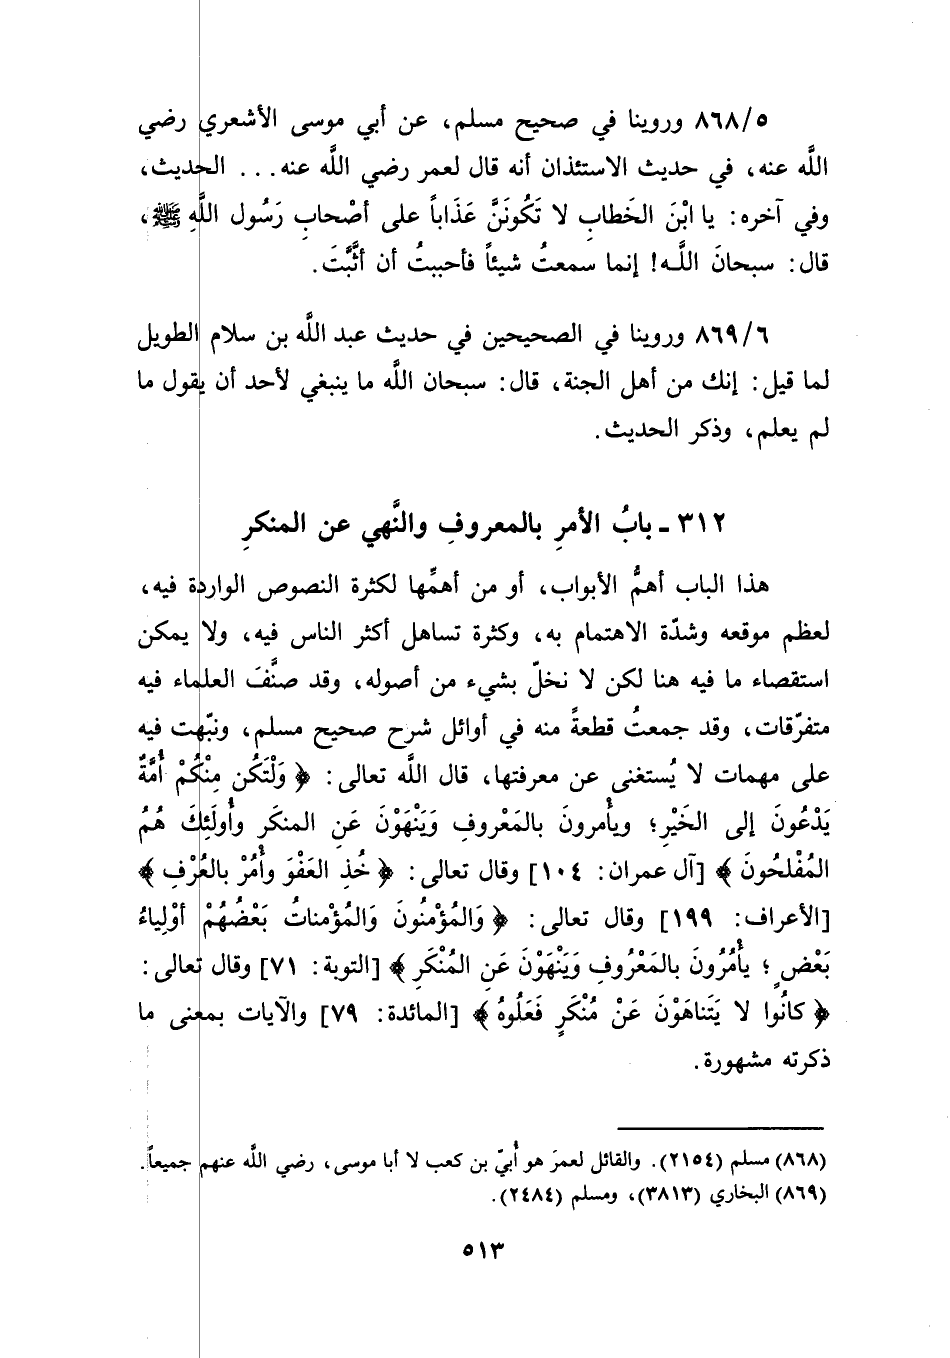 ٨٦٨/٥ وروينا في صحيح مسلم، عن أبي موسى الأشعري رضي
اللَّه عنه، في حديث الاستئذان أنه قال لعمر رضي اللَّه عنه... الحديث،
وفي آخره: يا ابْنَ الخَطابِ لا تَكُونَنَّ عَذَاباً على أصْحابِ رَسُول اللَّهِ ﷺ،
قال: سبحانَ اللَّـه! إنما سمعتُ شيئاً فأحببتُ أن أثَّبَّتَ.
٨٦٩/٦ وروينا في الصحيحين في حديث عبد اللَّه بن سلام الطويل
لما قيل: إنك من أهل الجنة، قال: سبحان اللَّه ما ينبغي لأحد أن يقول ما
لم يعلم، وذكر الحديث.
٣١٢ ـ بابُ الأمرِ بالمعروفِ والنَّهي عن المنكرِ
هذا الباب أهمُّ الأبواب، أو من أهمِّها لكثرة النصوص الواردة فيه،
لعظم موقعه وشدّة الاهتمام به، وكثرة تساهل أكثر الناس فيه، ولا يمكن
استقصاء ما فيه هنا لكن لا نخلّ بشيء من أصوله، وقد صنَّفَ العلماء فيه
متفرّقات، وقد جمعتُ قطعةً منه في أوائل شرح صحيح مسلم، ونبّهت فيه
على مهمات لا يُستغنى عن معرفتها، قال اللَّه تعالى: ﴿وَلْتَكُن مِنْكُمْ أُمَّةٌ
يَدْعُونَ إلى الخَيْرِ؛ ويأْمرونَ بالمَعْروفِ وَيَنْهَوْنَ عَنِ المنكَرِ وأُولَئِكَ هُمُ
المُفْلحُونَ﴾ [آل عمران: ١٠٤] وقال تعالى: ﴿خُذِ العَفْوَ وأْمُرْ بالعُرْفِ﴾
[الأعراف: ١٩٩] وقال تعالى: ﴿وَالمُؤْمنُونَ وَالمُؤْمناتُ بَعْضُهُمْ أوْلِياءُ
بَعْضٍ؛ يأْمُرُونَ بالمَعْرُوفِ وَيَنْهَوْنَ عَنِ المُنْكَرِ﴾ [التوبة: ٧١] وقال تعالى:
﴿كانُوا لا يَتَناهَوْنَ عَنْ مُنْكَرٍ فَعَلُوهُ﴾ [المائدة: ٧٩] والآيات بمعنى ما
ذكرته مشهورة.
(٨٦٨) مسلم (٢١٥٤). والقائل لعمرَ هو أُبيّ بن كعب لا أبا موسى، رضي اللَّه عنهم جميعاً.
(٨٦٩) البخاري (٣٨١٣)، ومسلم (٢٤٨٤).
٥١٣